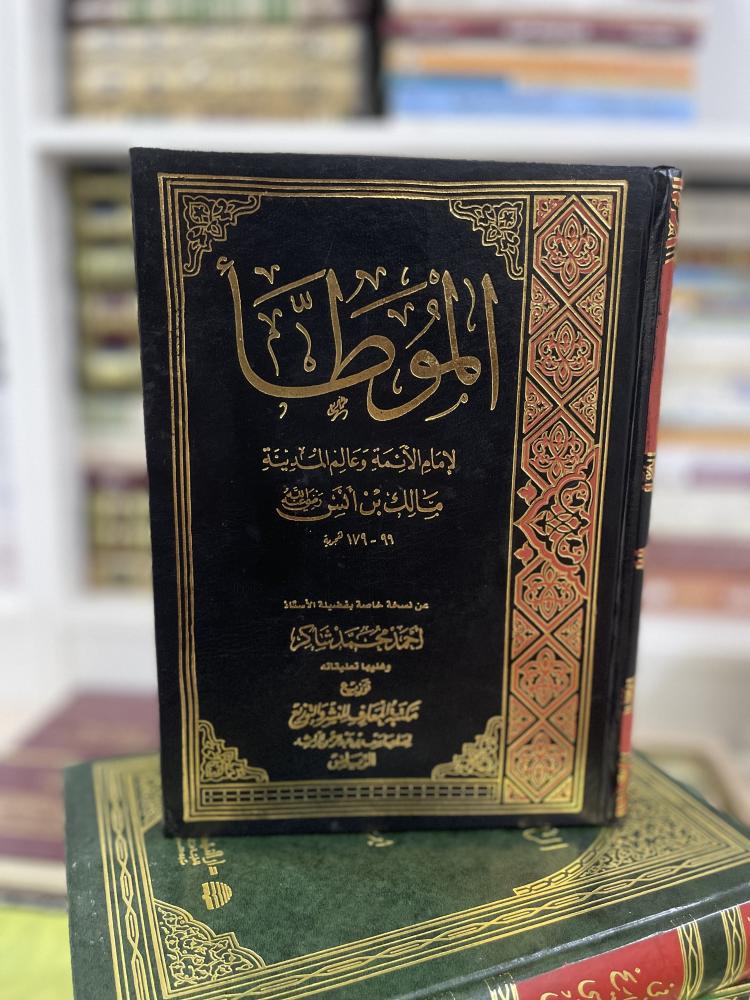 الموطأ
لإمام الأئمة وعالم المدينة
مالك بن أنس رضي الله عنه
٩٩ - ١٧٩ هجرية
عن نسخة خاصة بفضيلة الأستاذ
أحمد محمد شاكر
وعليها تعليقاته
توزيع
مكتبة المعارف للنشر والتوزيع
الرياض